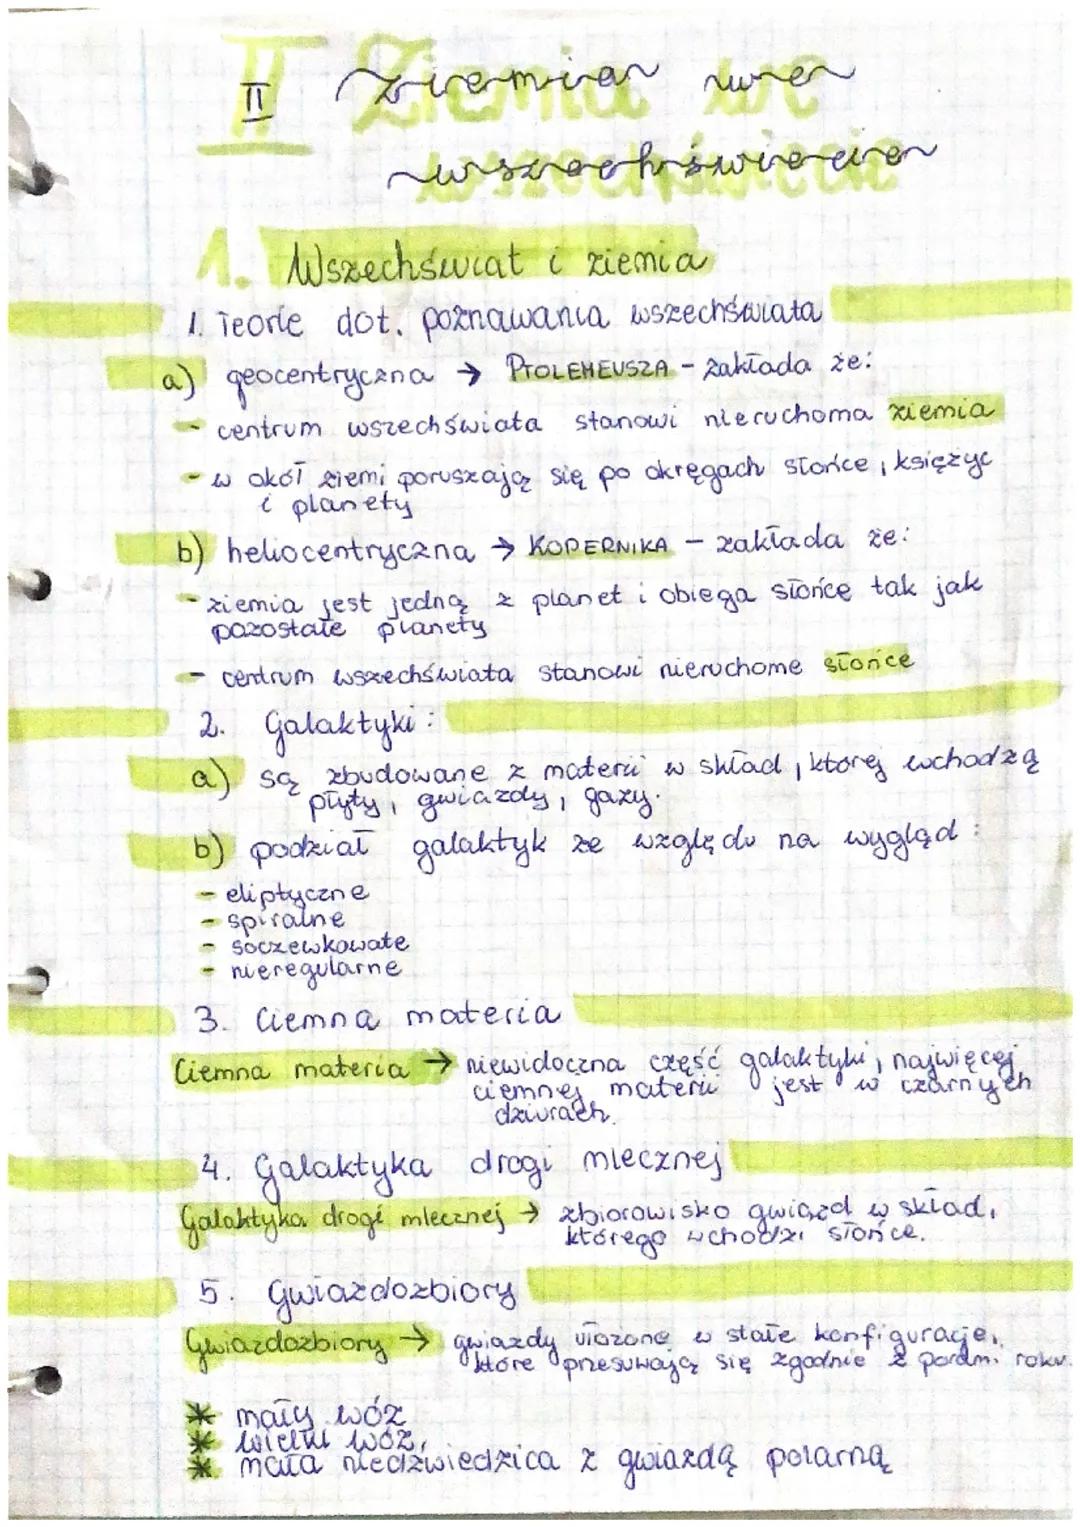 II Ziemia we
wszechświecie
1. Wszechświat i ziemia
1. Teorie dot. poznawania wszechświata
a) geocentryczna → PTOLEMEUSZA - zakłada że:
- centrum wszechświata stanowi nieruchoma ziemia
- w okół ziemi poruszają się po okręgach słońce, księżyc
i planety
b) heliocentryczna → KOPERNIKA - zakłada że:
- ziemia jest jedną z planet i obiega słońce tak jak
pozostałe planety
- centrum wszechświata stanowi nieruchome słońce
2. Galaktyki:
a) są zbudowane z materii w skład, której wchodzą
płyty, gwiazdy, gazy.
b) podział galaktyk ze względu na wygląd:
- eliptyczne
- spiralne
- soczewkowate
- nieregularne
3. Ciemna materia
Ciemna materia → niewidoczna część galaktyki, najwięcej
ciemnej materii jest w czarnych
dziurach.
4. Galaktyka drogi mlecznej
Galaktyka drogi mlecznej → zbiorowisko gwiazd w skład,
którego wchodzi słońce.
5. Gwiazdozbiory
Gwiazdozbiory → gwiazdy ułożone w stałe konfiguracje,
które przesuwają się zgodnie z porami roku.
* mały wóz
* wielki wóz,
* mała niedźwiedzica z gwiazdą polarną